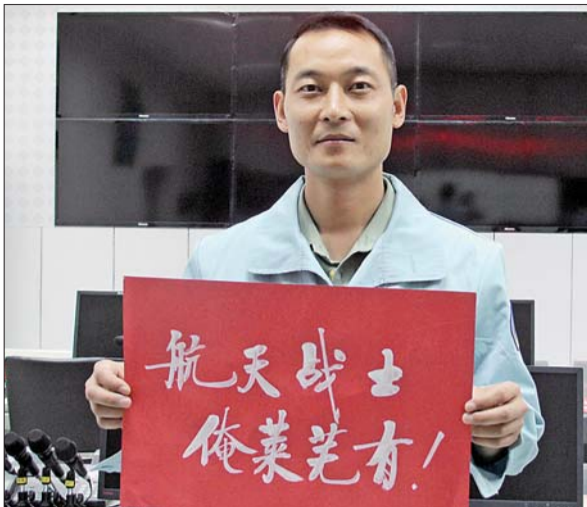 航天战士
俺莱芜有！